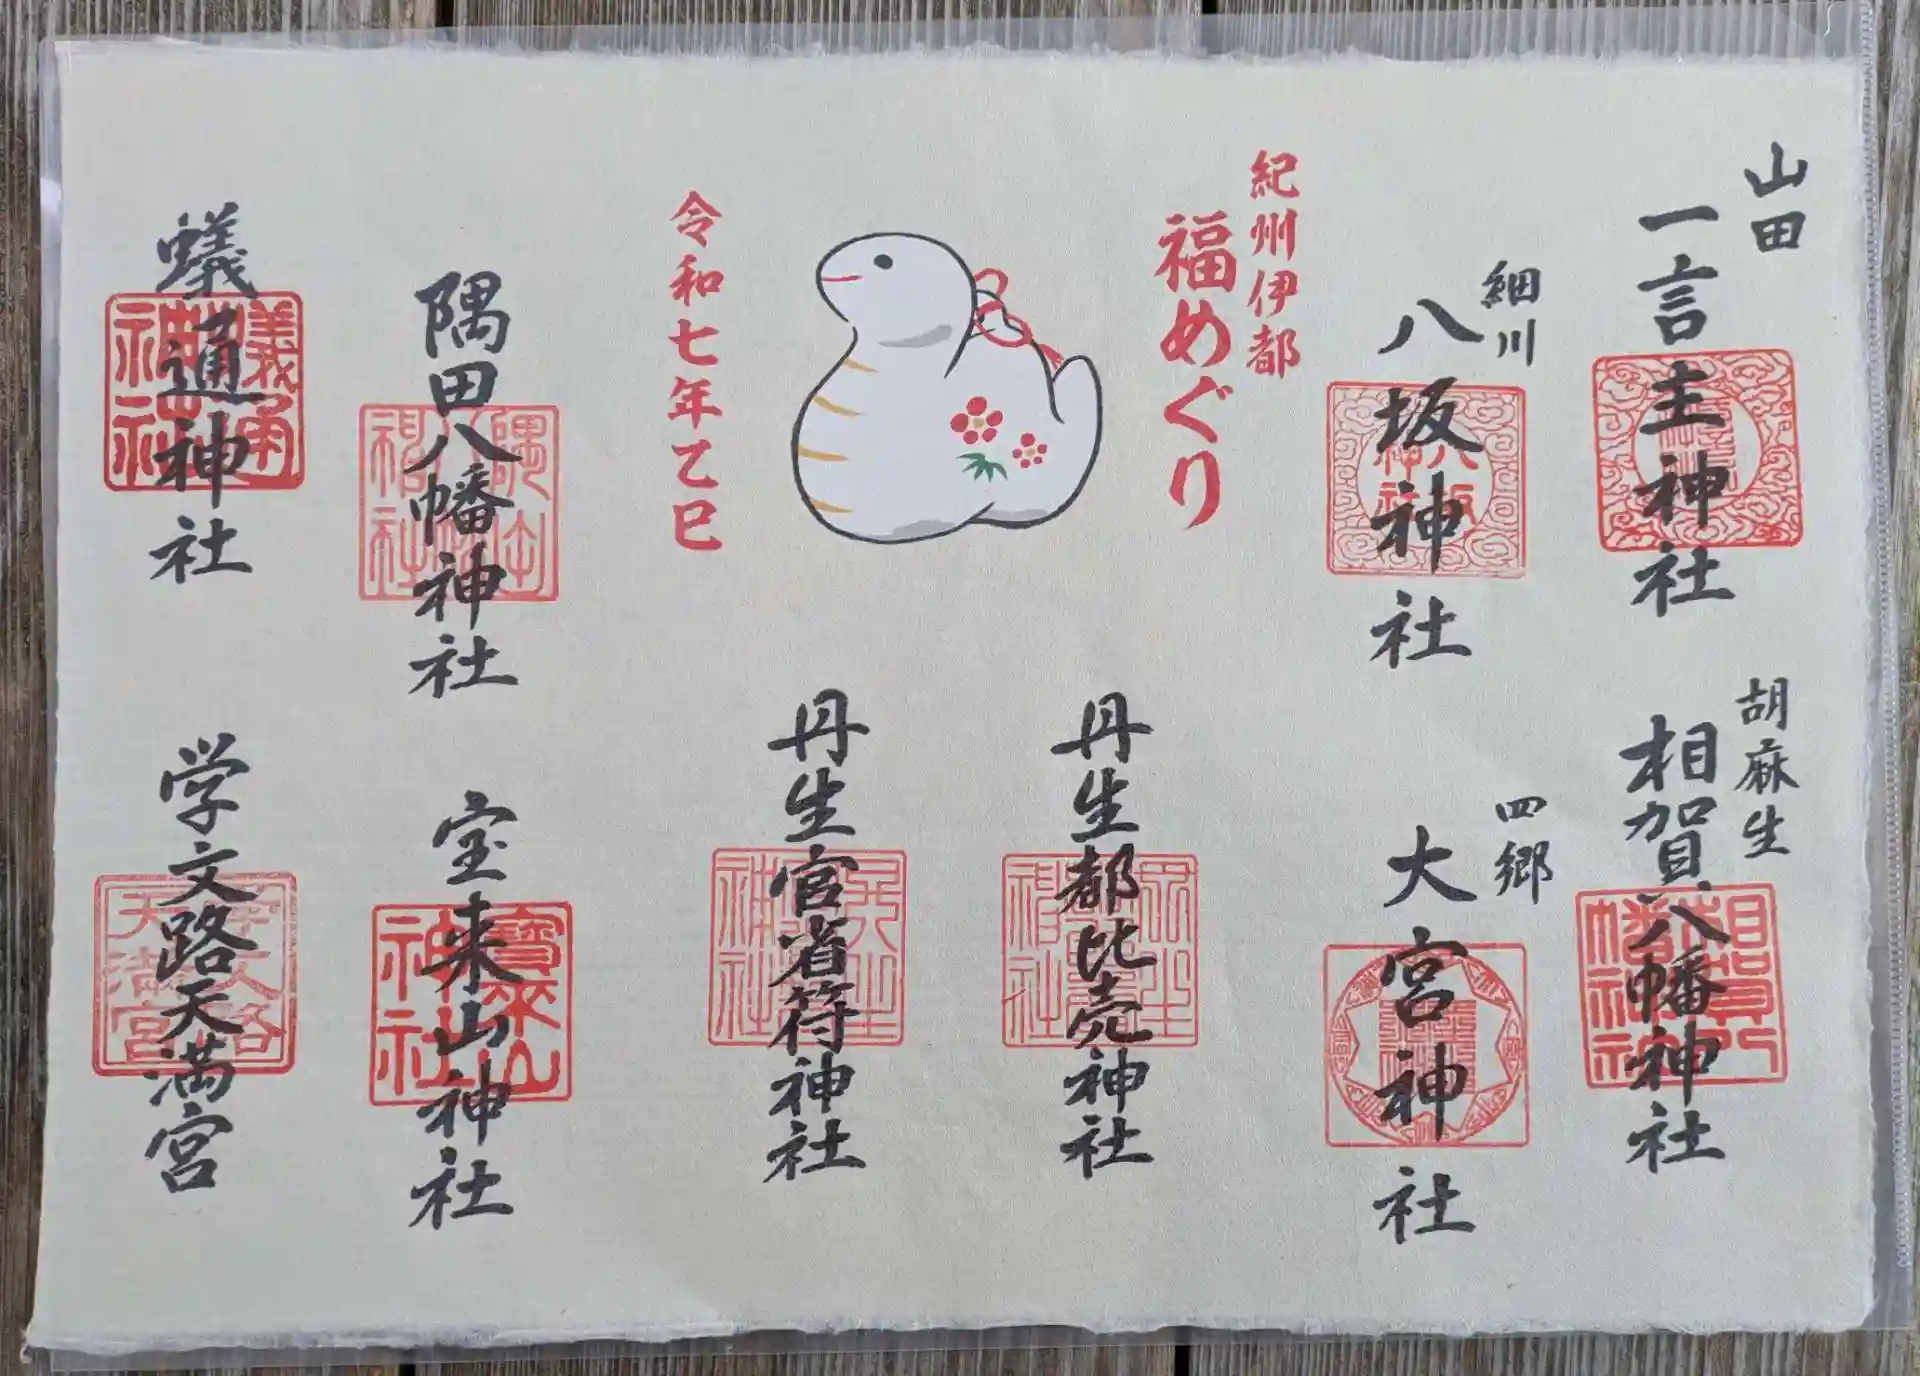 山田
一言主神社
細川
八坂神社
紀州伊都
福めぐり
令和七年乙巳
隅田八幡神社
蟻通神社
胡麻生
相賀八幡神社
四郷
大宮神社
丹生都比売神社
丹生官省符神社
宝来山神社
学文路天満宮